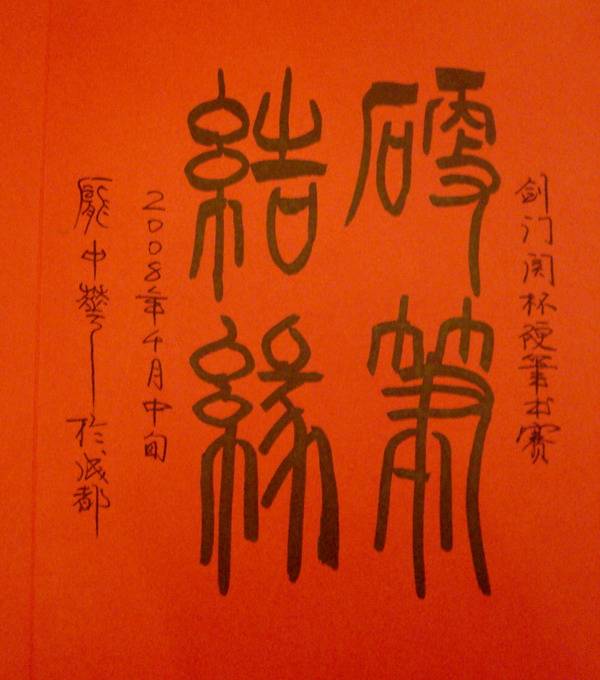 剑门関杯硬筆书赛
硬筆
結緣
2008年4月中旬
龐中華於成都